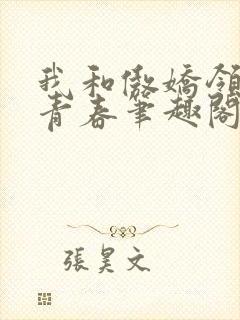 我和傲嬌領
青春筆趣閣
張昊文